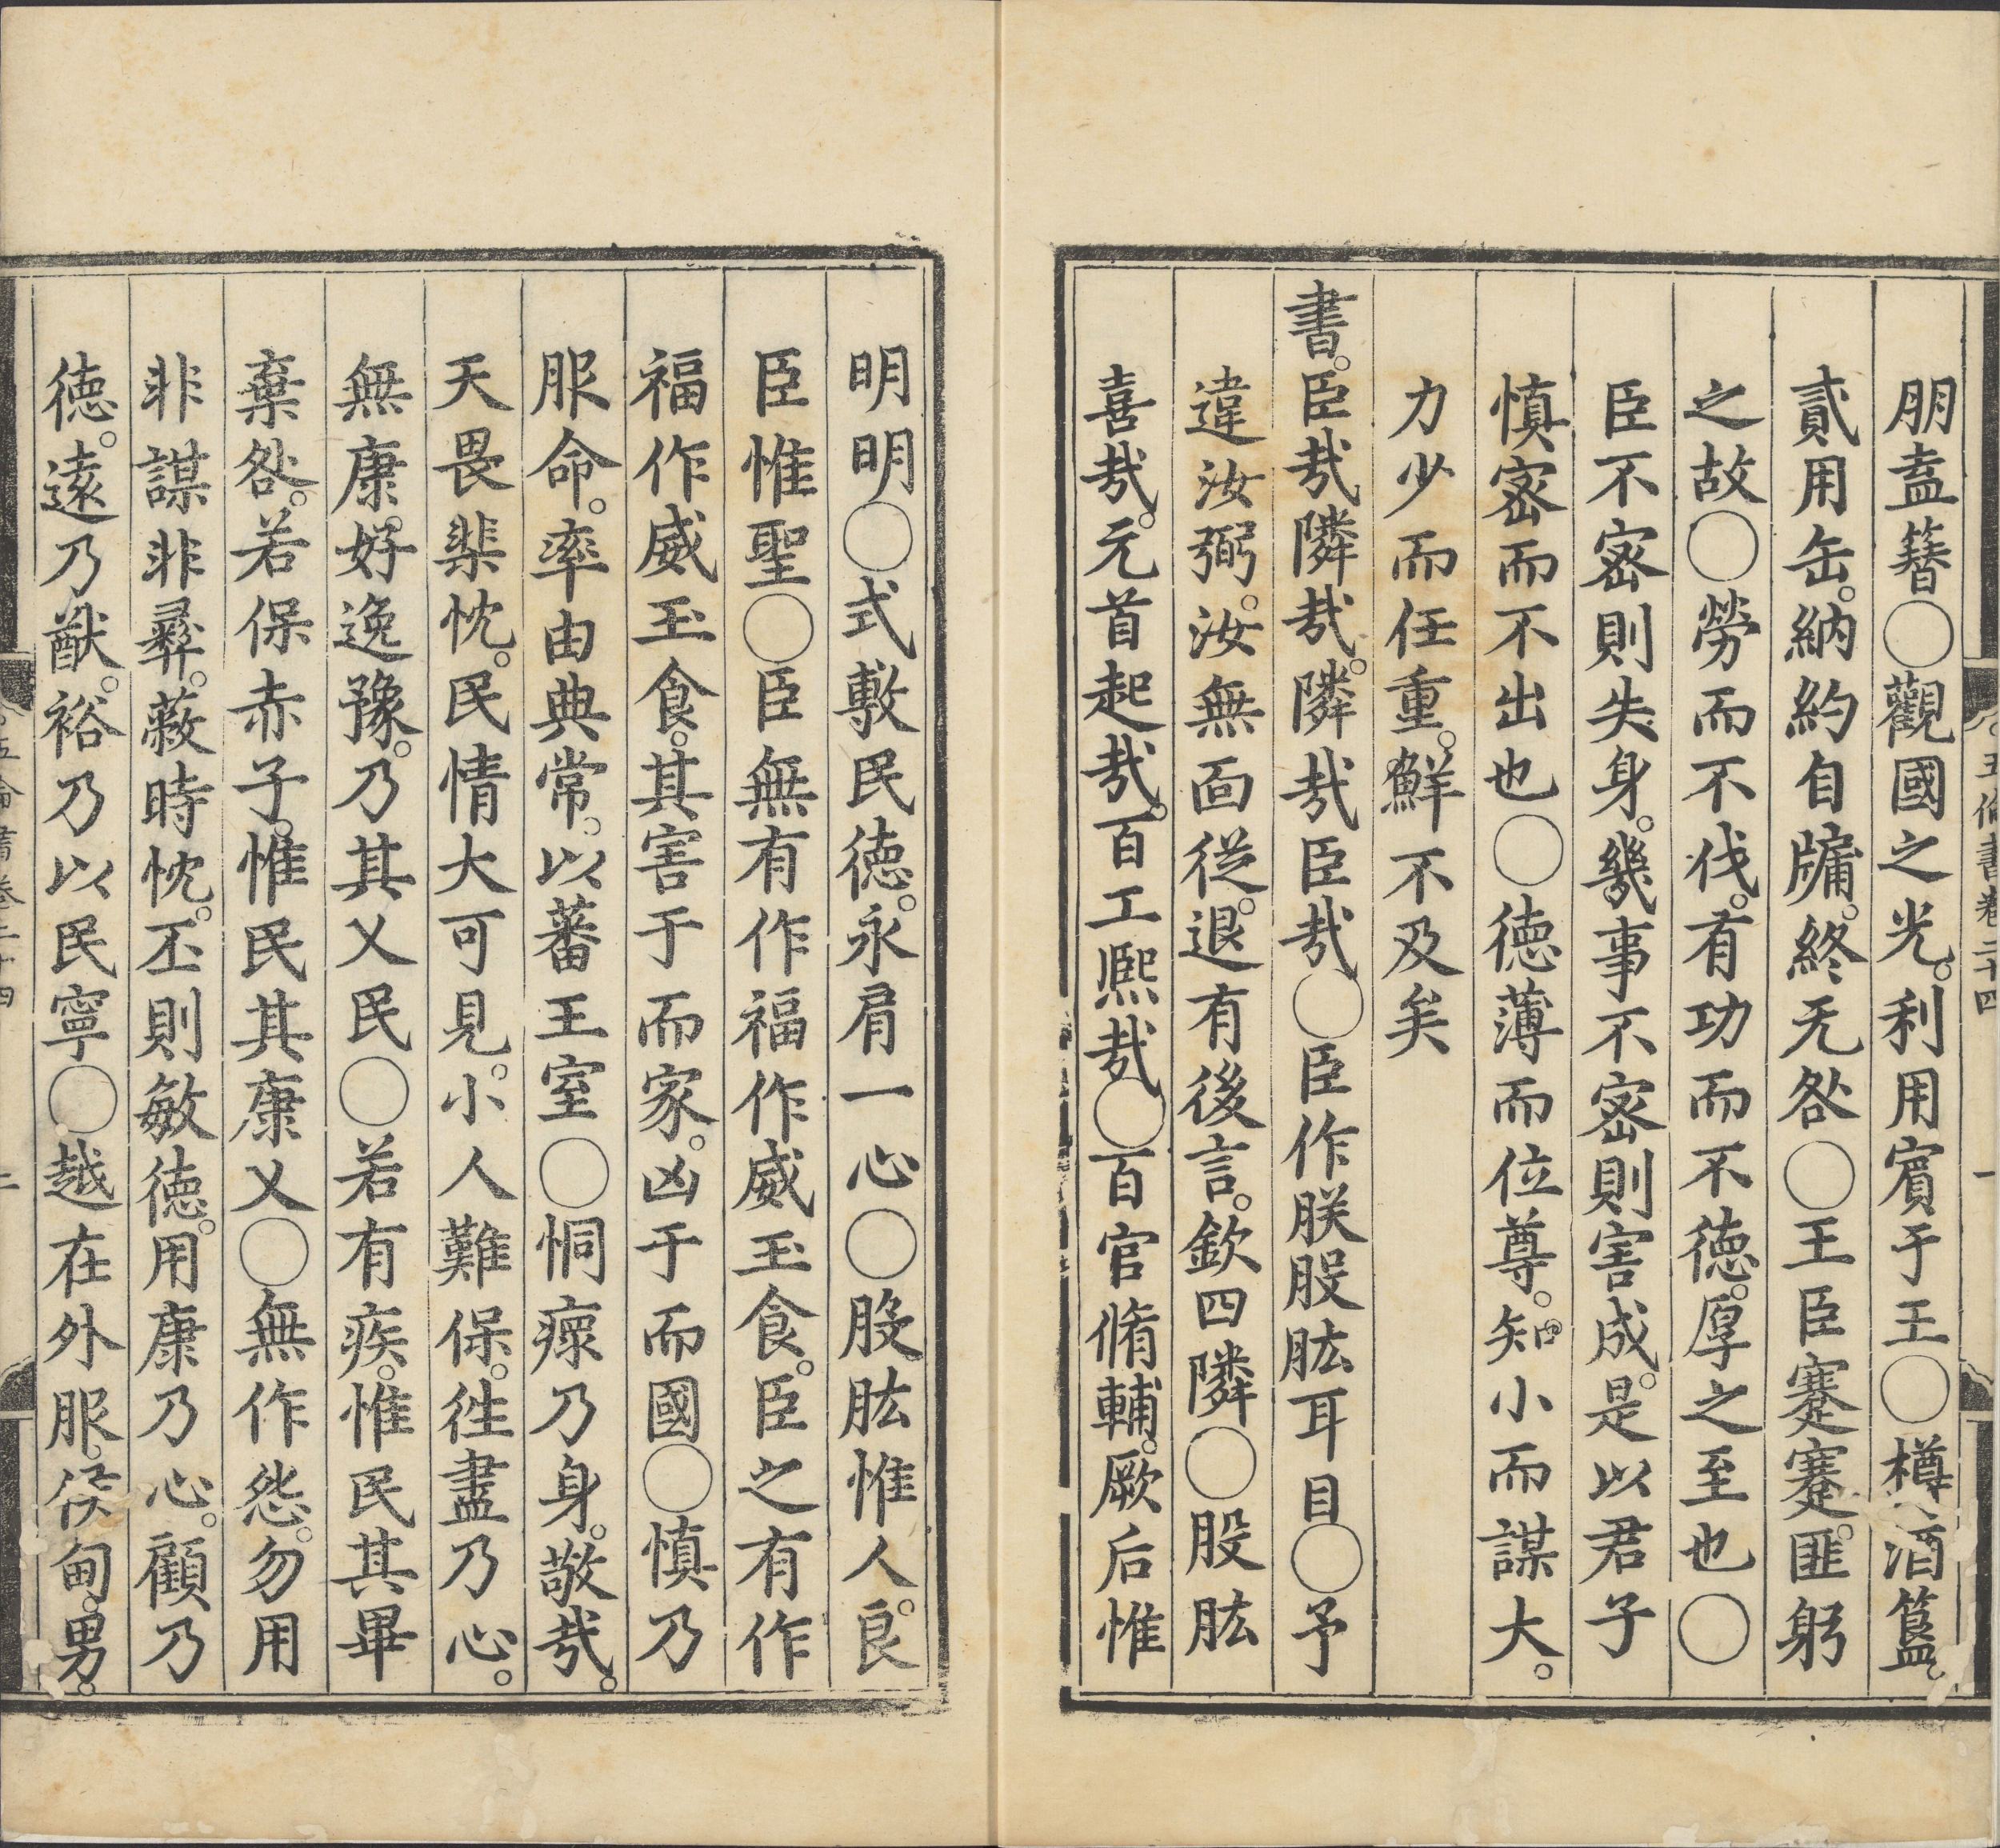 五倫書卷二十四 一
朋盍簪○觀國之光。利用賔于王○樽酒簋。
貳用缶。納約自牖。終无咎○王臣蹇蹇。匪躬
之故○勞而不伐。有功而不徳。厚之至也○
臣不宻則失身。幾事不宻則害成。是以君子
慎宻而不出也○徳薄而位尊。知小而謀大。
力少而任重。鮮不及矣
書。臣哉隣哉。隣哉臣哉○臣作朕股肱耳目○予
違汝弼。汝無面從。退有後言。欽四隣○股肱
喜哉。元首起哉。百工熈哉○百官脩輔。厥后惟
明明○式敷民徳。永肩一心○股肱惟人。良
臣惟聖○臣無有作福作威玉食。臣之有作
福作威玉食。其害于而家。凶于而國○慎乃
服命。率由典常。以蕃王室○恫瘝乃身。敬哉。
天畏棐忱。民情大可見。小人難保。徃盡乃心。
無康。好逸豫。乃其乂民○若有疾。惟民其畢
棄咎。若保赤子。惟民其康乂○無作怨。勿用
非謀非彝。蔽時忱。丕則敏徳。用康乃心。顧乃
徳。逺乃猷。裕乃以民寧○越在外服。侯甸。男。
五倫書卷二十四 二